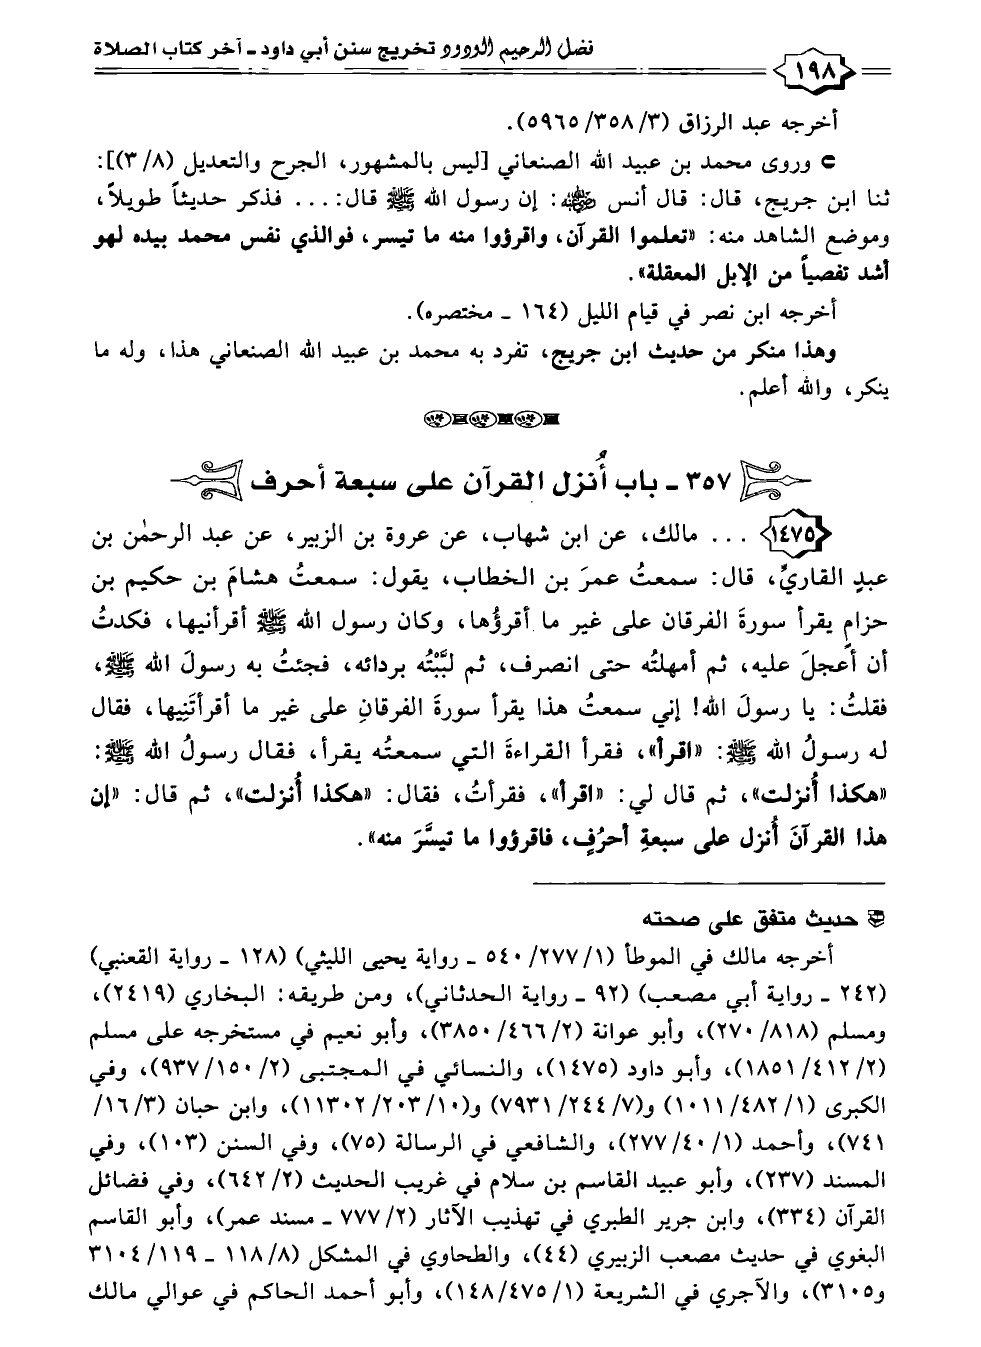 فضل الرحيم الودود تخريج سنن أبي داود ـ آخر كتاب الصلاة
١٩٨
أخرجه عبد الرزاق (٣/ ٣٥٨/ ٥٩٦٥).
وروى محمد بن عبيد الله الصنعاني [ليس بالمشهور، الجرح والتعديل (٣/٨)]:
ثنا ابن جريج، قال: قال أنس رضي الله عنه: إن رسول الله ﷺ قال: ... فذكر حديثاً طويلاً،
وموضع الشاهد منه: «تعلموا القرآن، واقرؤوا منه ما تيسر، فوالذي نفس محمد بيده لهو
أشد تفصياً من الإبل المعقلة».
أخرجه ابن نصر في قيام الليل (١٦٤ ـ مختصره).
وهذا منكر من حديث ابن جريج، تفرد به محمد بن عبيد الله الصنعاني هذا، وله ما
ينكر، والله أعلم.
٣٥٧ ـ باب أُنزل القرآن على سبعة أحرف
١٤٧٥ ... مالك، عن ابن شهاب، عن عروة بن الزبير، عن عبد الرحمٰن بن
عبدٍ القاريِّ، قال: سمعتُ عمرَ بن الخطاب، يقول: سمعتُ هشامَ بن حكيم بن
حزامٍ يقرأ سورةَ الفرقان على غير ما أقرؤُها، وكان رسول الله ﷺ أقرأنيها، فكدتُ
أن أعجلَ عليه، ثم أمهلتُه حتى انصرف، ثم لبَّبْتُه بردائه، فجئتُ به رسولَ الله ﷺ،
فقلتُ: يا رسولَ الله! إني سمعتُ هذا يقرأ سورةَ الفرقانِ على غير ما أقرأتَنِيها، فقال
له رسولُ الله ﷺ: «اقرأ»، فقرأ القراءةَ التي سمعتُه يقرأ، فقال رسولُ الله ﷺ:
«هكذا أُنزلت»، ثم قال لي: «اقرأ»، فقرأتُ، فقال: «هكذا أُنزلت»، ثم قال: «إن
هذا القرآنَ أُنزل على سبعةِ أحرُفٍ، فاقرؤوا ما تيسَّرَ منه».
حديث متفق على صحته
أخرجه مالك في الموطأ (١/ ٢٧٧/ ٥٤٠ ـ رواية يحيى الليثي) (١٢٨ ـ رواية القعنبي)
(٢٤٢ ـ رواية أبي مصعب) (٩٢ ـ رواية الحدثاني)، ومن طريقه: البخاري (٢٤١٩)،
ومسلم (٨١٨/ ٢٧٠)، وأبو عوانة (٢/ ٤٦٦/ ٣٨٥٠)، وأبو نعيم في مستخرجه على مسلم
(٢/ ٤١٢/ ١٨٥١)، وأبو داود (١٤٧٥)، والنسائي في المجتبى (٢/ ١٥٠/ ٩٣٧)، وفي
الكبرى (١/ ٤٨٢/ ١٠١١) و(٧/ ٢٤٤/ ٧٩٣١) و(١٠/ ٢٠٣/ ١١٣٠٢)، وابن حبان (٣/ ١٦/
٧٤١)، وأحمد (١/ ٤٠/ ٢٧٧)، والشافعي في الرسالة (٧٥)، وفي السنن (١٠٣)، وفي
المسند (٢٣٧)، وأبو عبيد القاسم بن سلام في غريب الحديث (٢/ ٦٤٢)، وفي فضائل
القرآن (٣٣٤)، وابن جرير الطبري في تهذيب الآثار (٢/ ٧٧٧ ـ مسند عمر)، وأبو القاسم
البغوي في حديث مصعب الزبيري (٤٤)، والطحاوي في المشكل (٨/ ١١٨ ـ ١١٩/ ٣١٠٤
و٣١٠٥)، والآجري في الشريعة (١/ ٤٧٥/ ١٤٨)، وأبو أحمد الحاكم في عوالي مالك